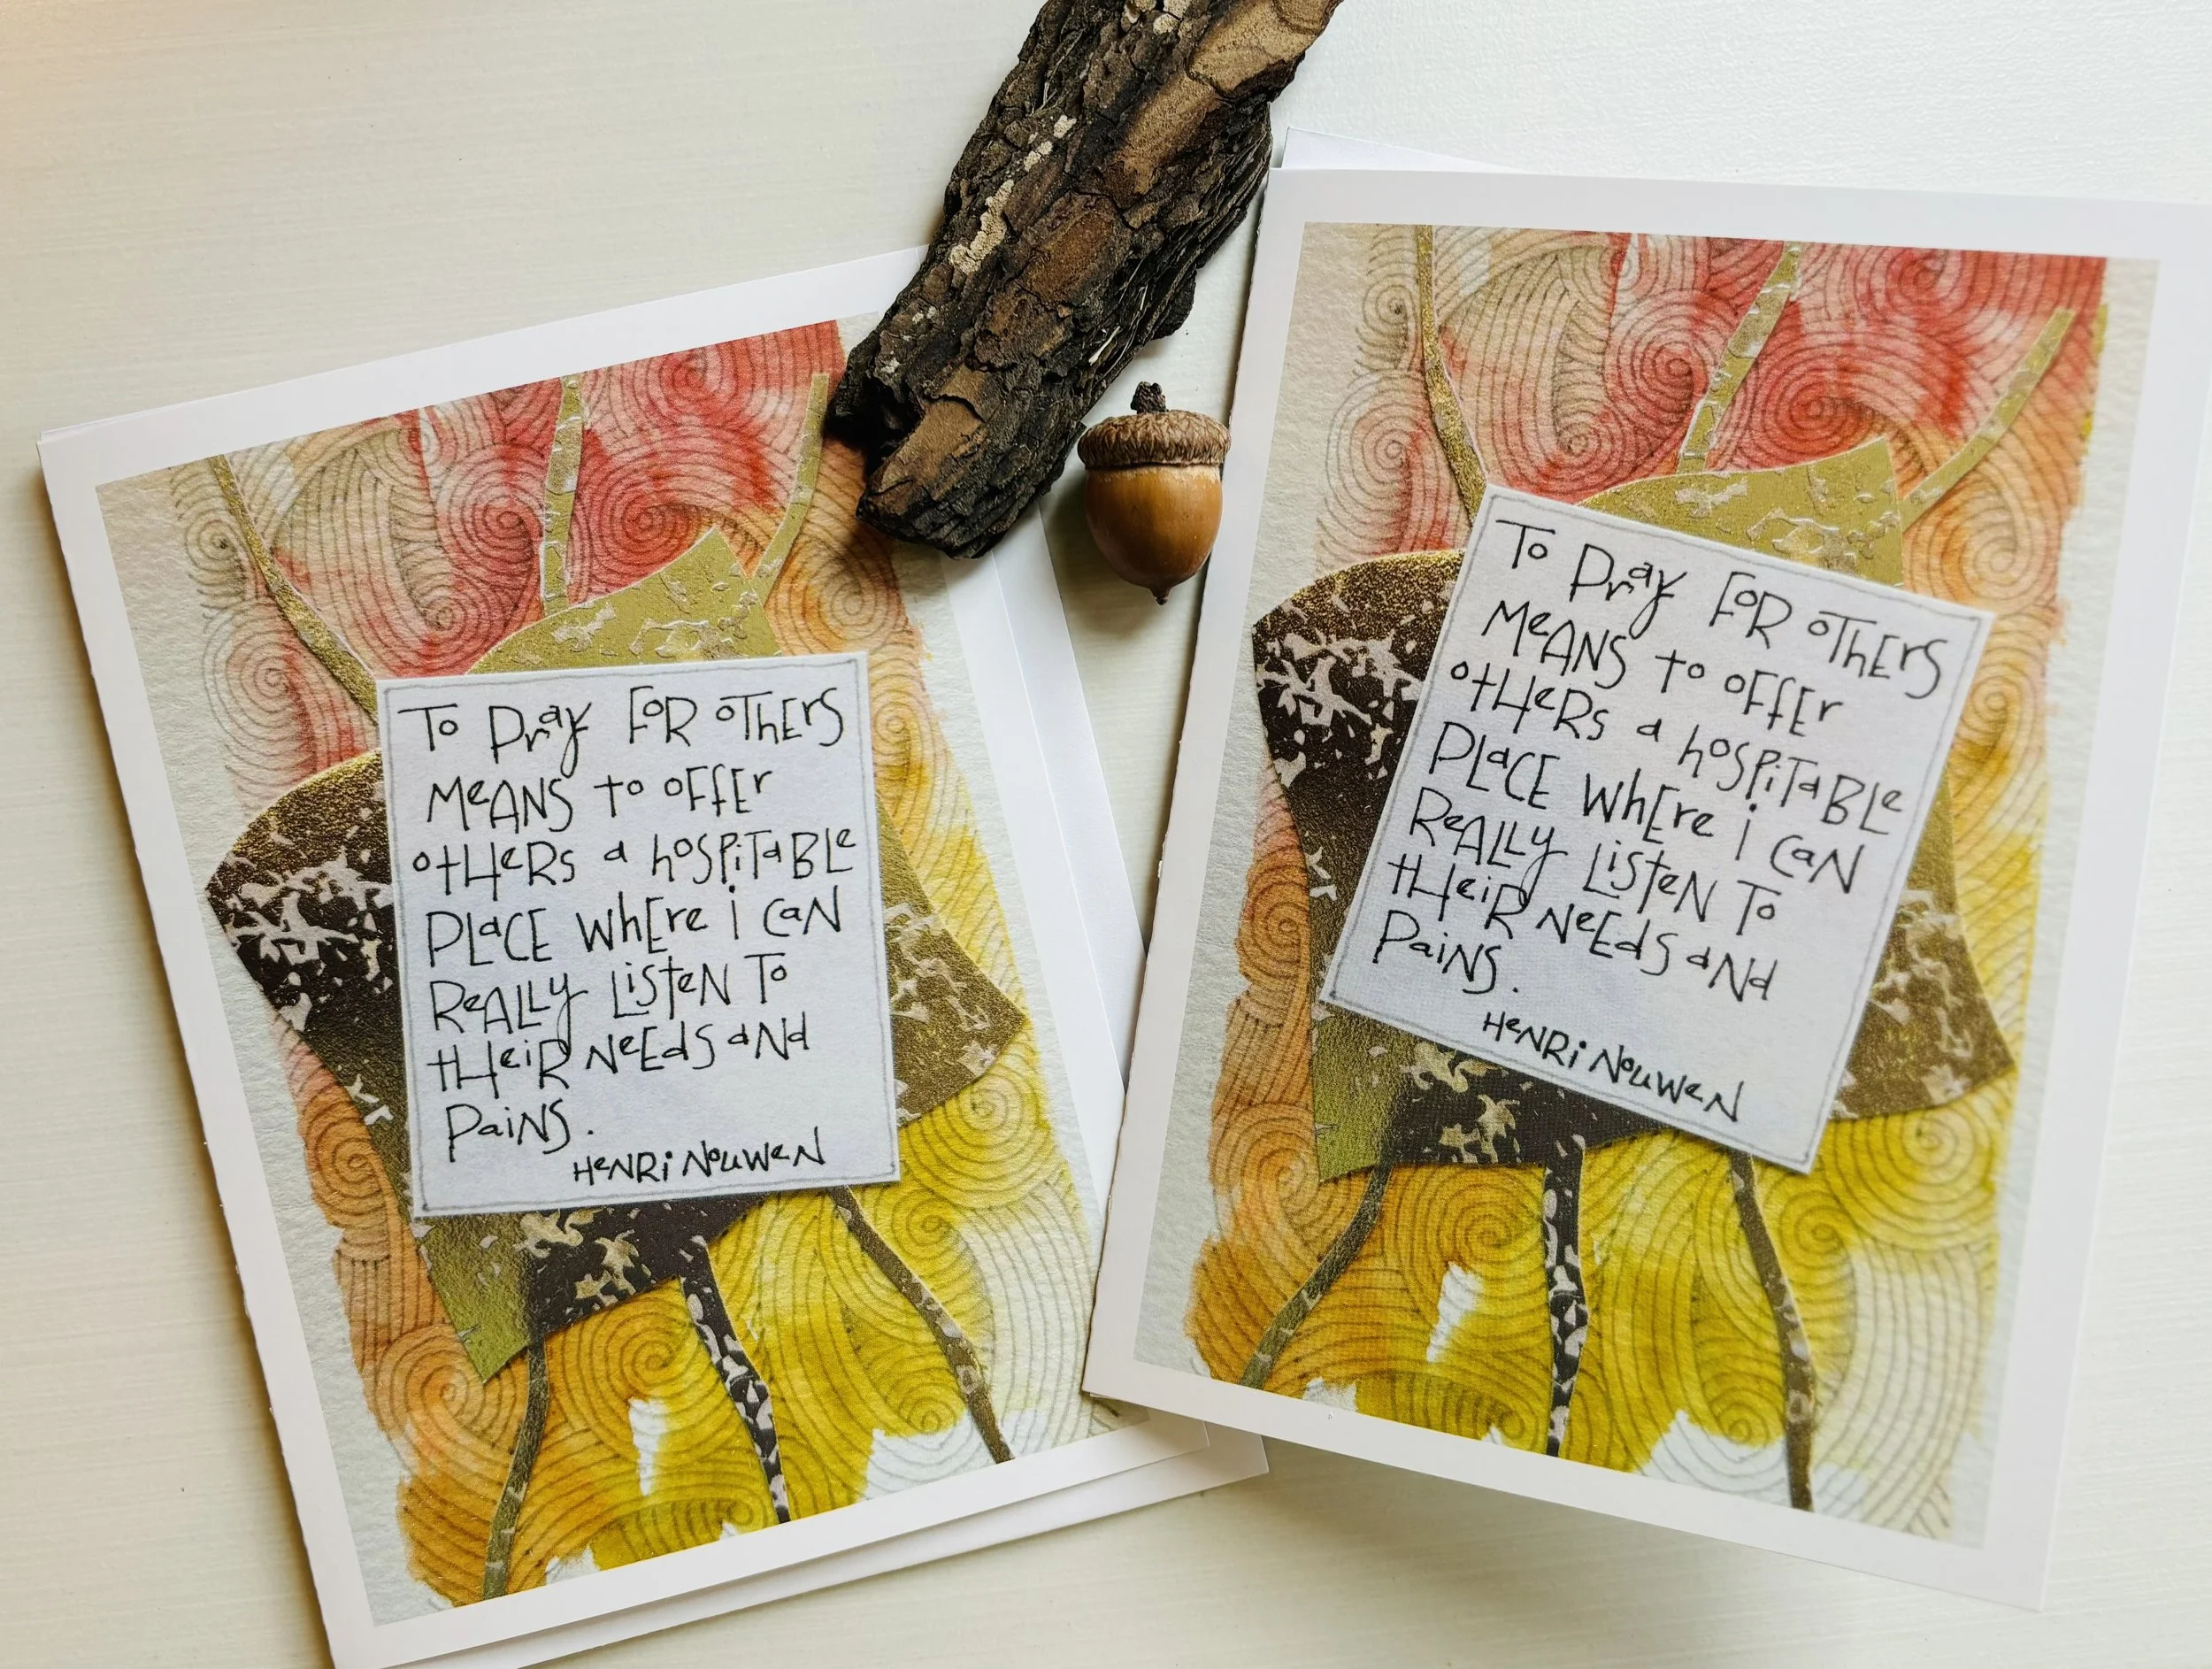 To Pray FoR oTHErs
MeANS to oFfEr
otHeRs a hoSPiTaBLe
PLaCE WhEre i CaN
ReALLy LiSteN To
tHeiR NeEdS aNd
PaiNS.
HeNRi NouWeN
To Pray FoR oTHErs
MeANS to oFfEr
otHeRs a hoSPiTaBLe
PLaCE WhEre i CaN
ReALLy LiSteN To
tHeiR NeEdS aNd
PaiNS.
HeNRi NouWeN